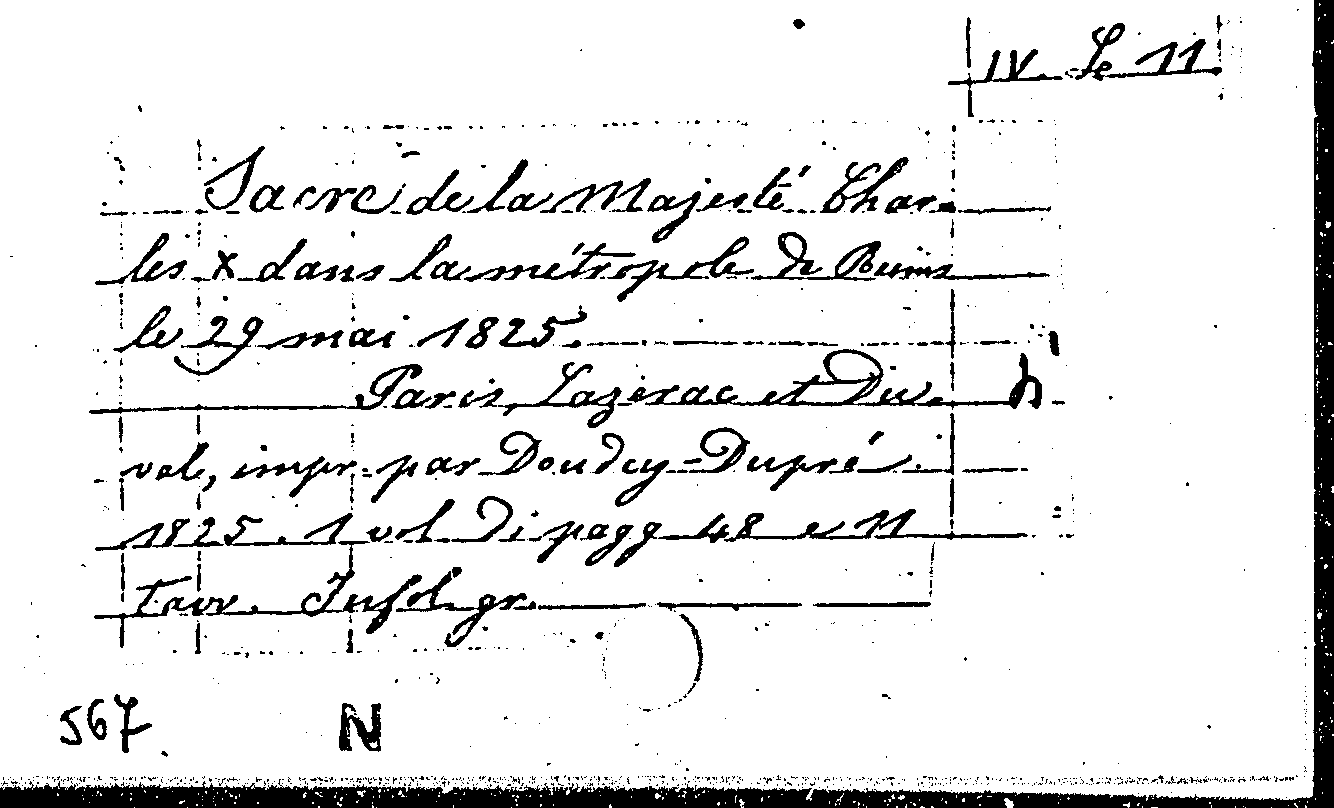 IV. Le 11
Sacre de la Majesté Char-
les X dans la métropole de Reims
le 29 mai 1825.
Paris, Lazerac et Du-
val, impr. par Doudey-Dupré.
1825. 1 vol. di pagg 48 e 11
tavv. In fol. gr.
567 N